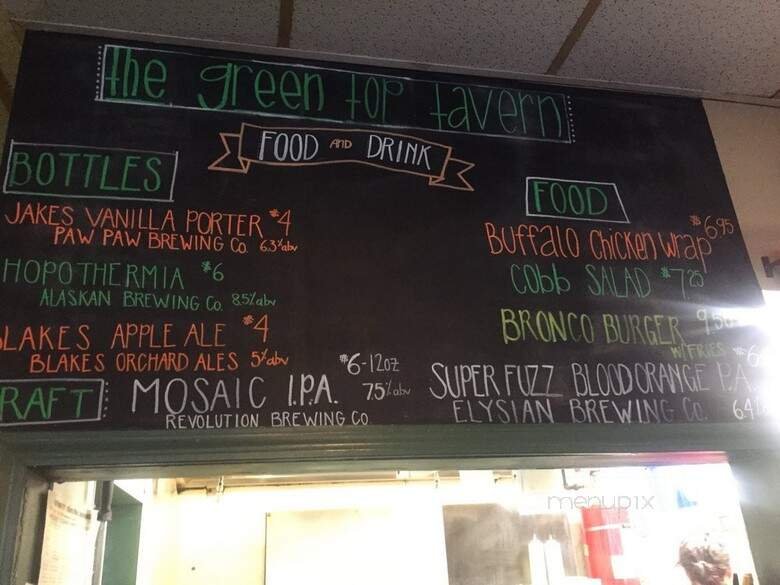 the green top tavern
FOOD AND DRINK
BOTTLES
JAKES VANILLA PORTER $4
PAW PAW BREWING Co. 6.3%abv
HOPOTHERMIA $6
ALASKAN BREWING Co. 8.5%abv
LAKES APPLE ALE $4
BLAKES ORCHARD ALES 5%abv
FOOD
Buffalo Chicken Wrap $6.95
Cobb SALAD $7.25
BRONCO BURGER 9.50
W/FRIES
RAFT
MOSAIC I.P.A. $6-12oz
7.5%abv
REVOLUTION BREWING CO.
SUPER FUZZ BLOOD ORANGE P.A. $6
ELYSIAN BREWING Co. 6.4
menupix